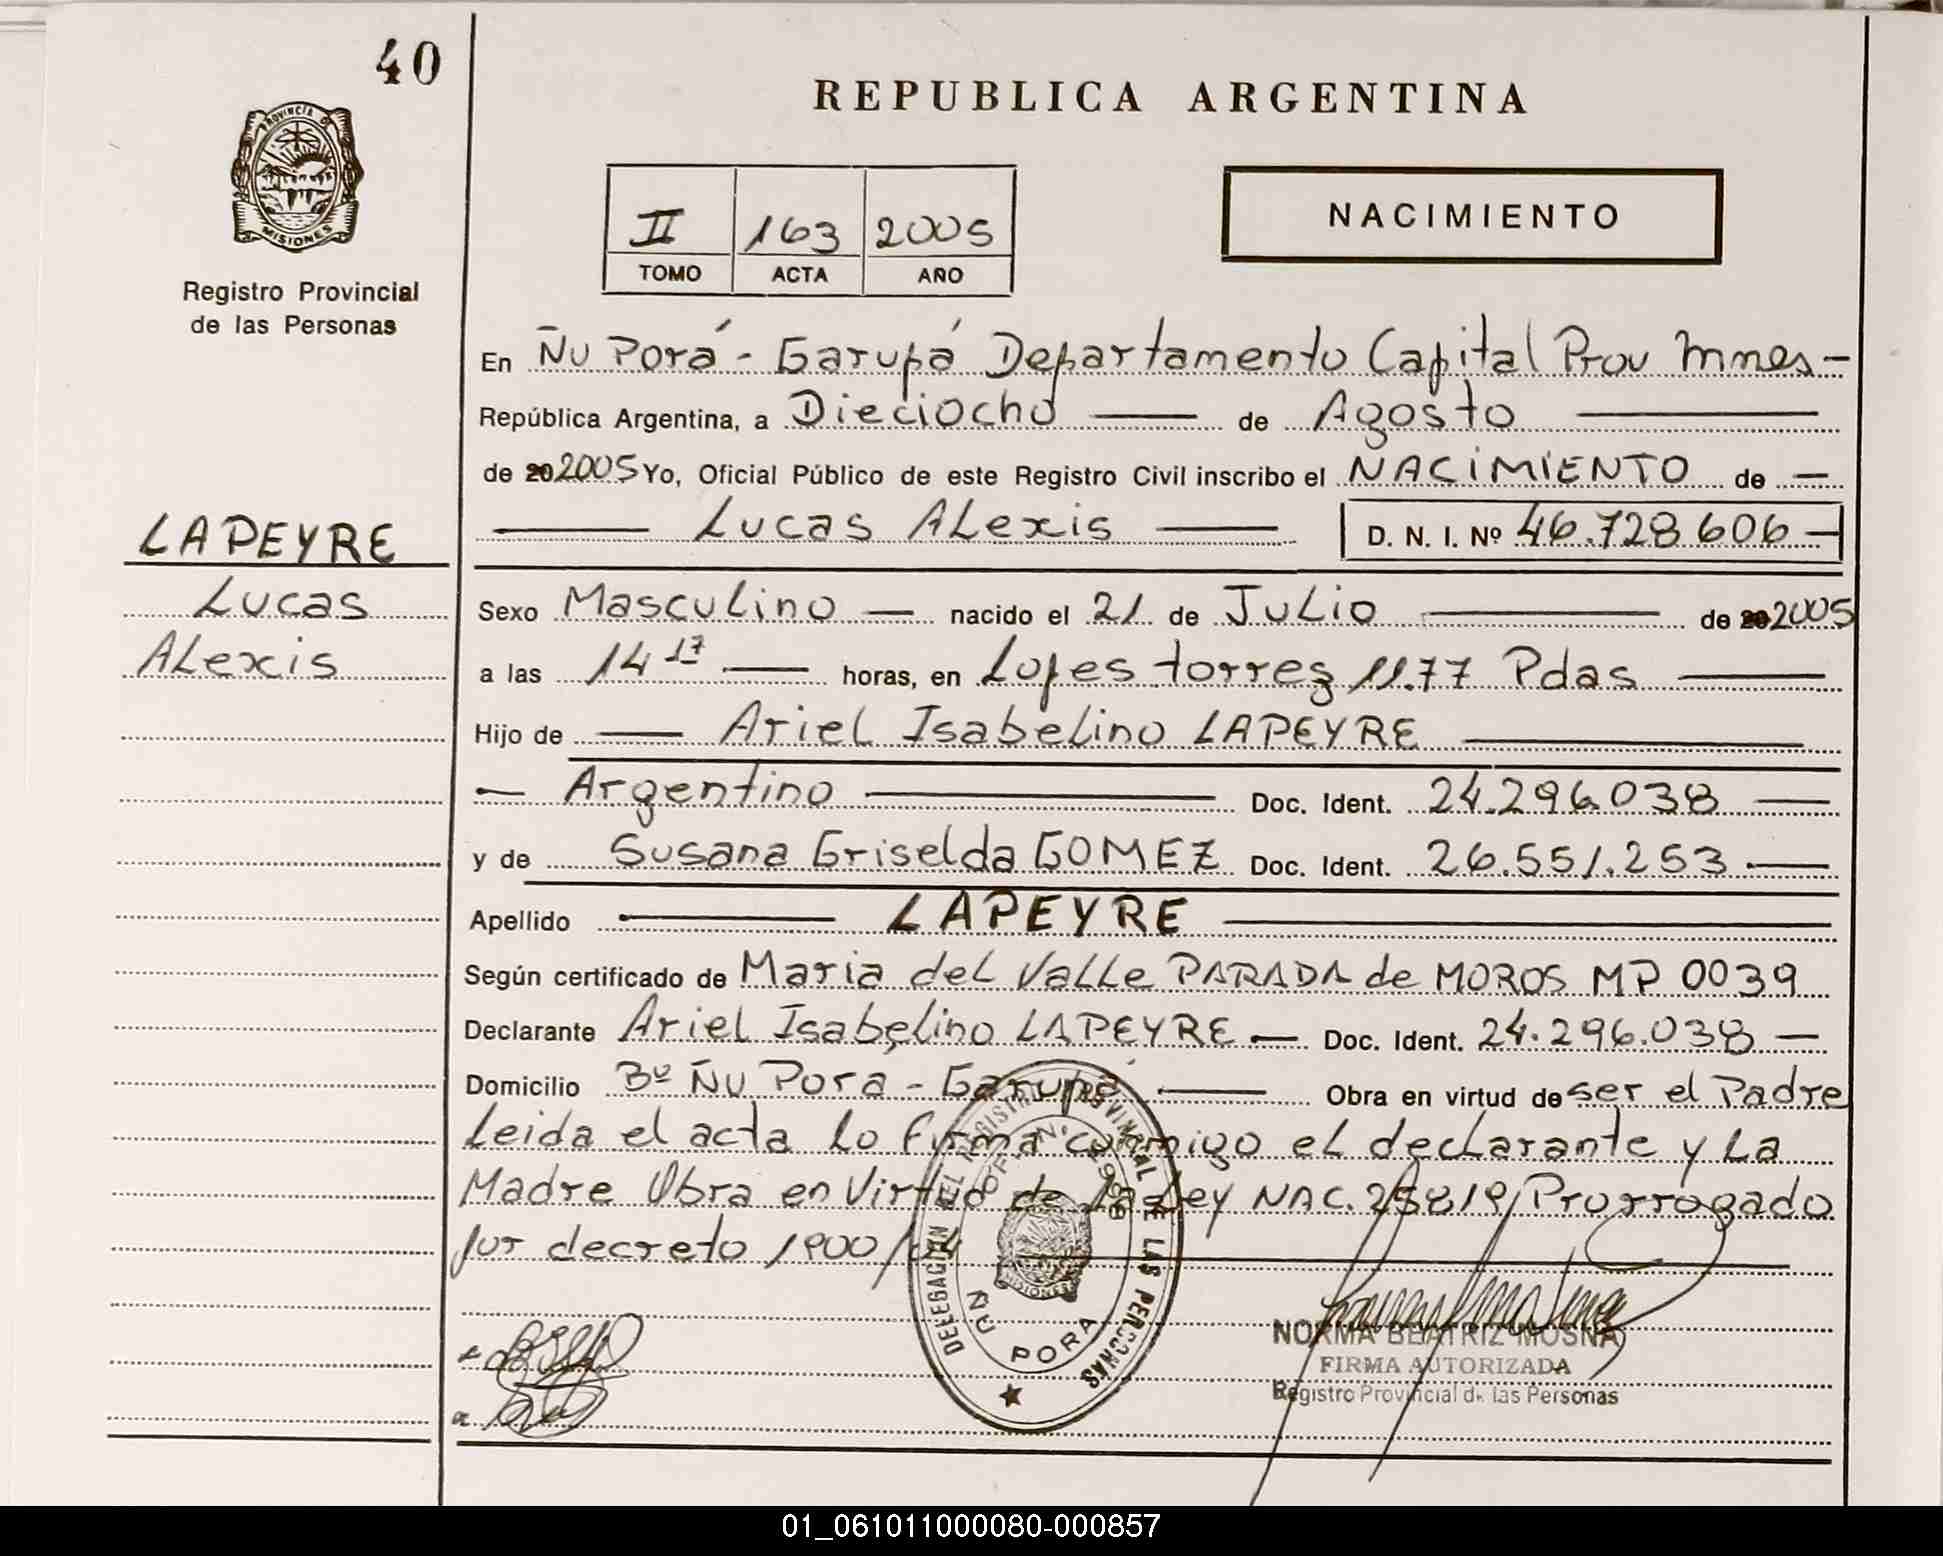 40
PROVINCIA DE
MISIONES
Registro Provincial
de las Personas
LAPEYRE
Lucas
ALexis
REPUBLICA ARGENTINA
II 163 2005
TOMO ACTA AÑO
NACIMIENTO
En Ñu Porá - Garupá Departamento Capital Prov Mnes -
República Argentina, a Dieciocho de Agosto
de 20 2005 Yo, Oficial Público de este Registro Civil inscribo el NACIMIENTO de
Lucas ALexis D. N. I. Nº 46.728.606
Sexo Masculino nacido el 21 de Julio de 20 2005
a las 14 17 horas, en Lopes torres 11.77 Pdas
Hijo de Ariel Isabelino LAPEYRE
Argentino Doc. Ident. 24.296.038
y de Susana Griselda GOMEZ Doc. Ident. 26.551.253
Apellido LAPEYRE
Según certificado de Maria del Valle PARADA de MOROS MP 0039
Declarante Ariel Isabelino LAPEYRE Doc. Ident. 24.296.038
Domicilio Bº Ñu Pora - Garupá Obra en virtud de ser el Padre
Leida el acta lo firma conmigo el declarante y La
Madre Obra en Virtud de la Ley NAC. 25819 Prorrogado
por decreto 1900/04
DELEGACION DEL REGISTRO PROVINCIAL DE LAS PERSONAS
ÑU PORA
MISIONES
NORMA BEATRIZ MOSNA
FIRMA AUTORIZADA
Registro Provincial de las Personas
01_061011000080-000857